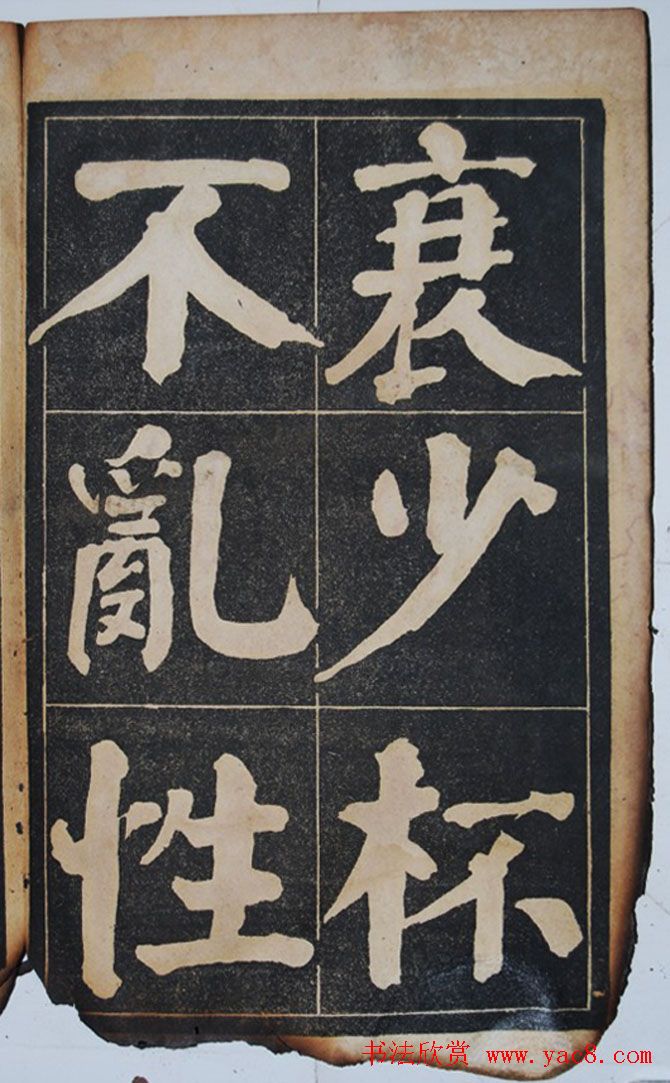 衰少杯
不亂性
书法欣赏 www.yac8.com